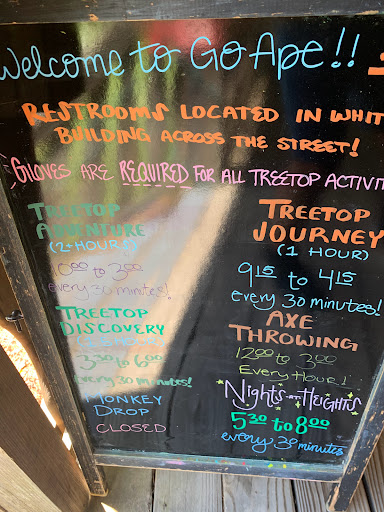 Welcome to Go Ape!!
RESTROOMS LOCATED IN WHIT
BUILDING ACROSS THE STREET!
GLOVES ARE REQUIRED FOR ALL TREETOP ACTIVIT
TREETOP
ADVENTURE
(2+ HOURS)
10:00 to 3:00
every 30 minutes!
TREETOP
DISCOVERY
3:30 to 6:00
every 30 minutes!
MONKEY
DROP
CLOSED
TREETOP
JOURNEY
(1 HOUR)
9:15 to 4:15
every 30 minutes!
AXE
THROWING
12:00 to 3:00
Every Hour!
Nights at Heights
5:30 to 8:00
every 30 minutes